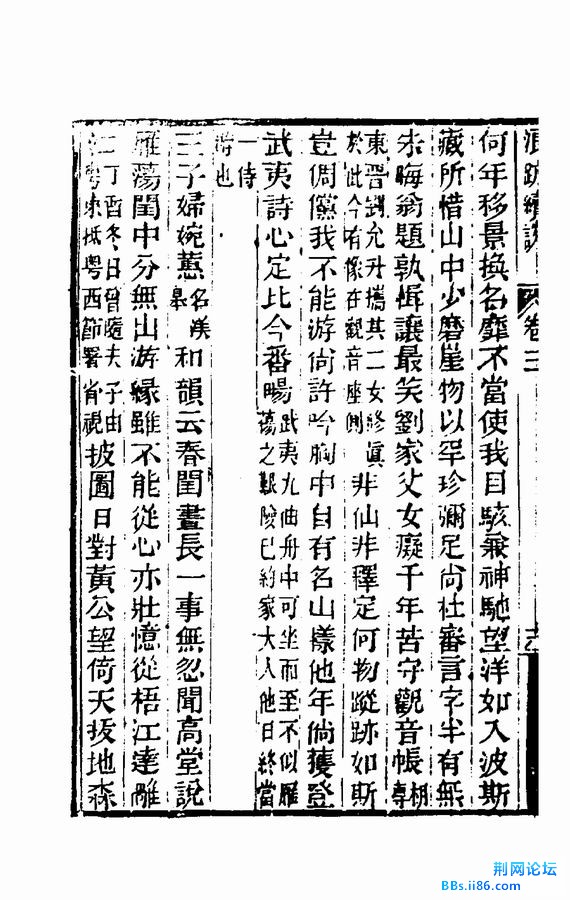 浪跡續談 卷二
何年移景換名靡不當使我目駭兼神馳望洋如入波斯
藏所惜山中少磨崖物以罕珍彌足尚杜審言字半有無
朱晦翁題孰揖讓最笑劉家父女癡千年苦守觀音帳
東晉劉允升攜其二女修真
於此今有像在觀音座側
非仙非釋定何物蹤跡如斯
豈倜儻我不能游尚許吟胸中自有名山樣他年倘獲登
武夷詩心定比今番暢
武夷九曲舟中可坐而至不似雁
蕩之艱險已約家大人他日終當
一侍
游也
三子婦婉蕙
名漢
皋
和韻云春閨晝長一事無忽聞高堂說
雁蕩閨中分無山游緣雖不能從心亦壯憶從梧江達雕
丁酉冬日曾隨夫子由
粵東抵粵西節署省視
披圖日對黃公望倚天拔地森
荆网论坛
BBs.ii86.com